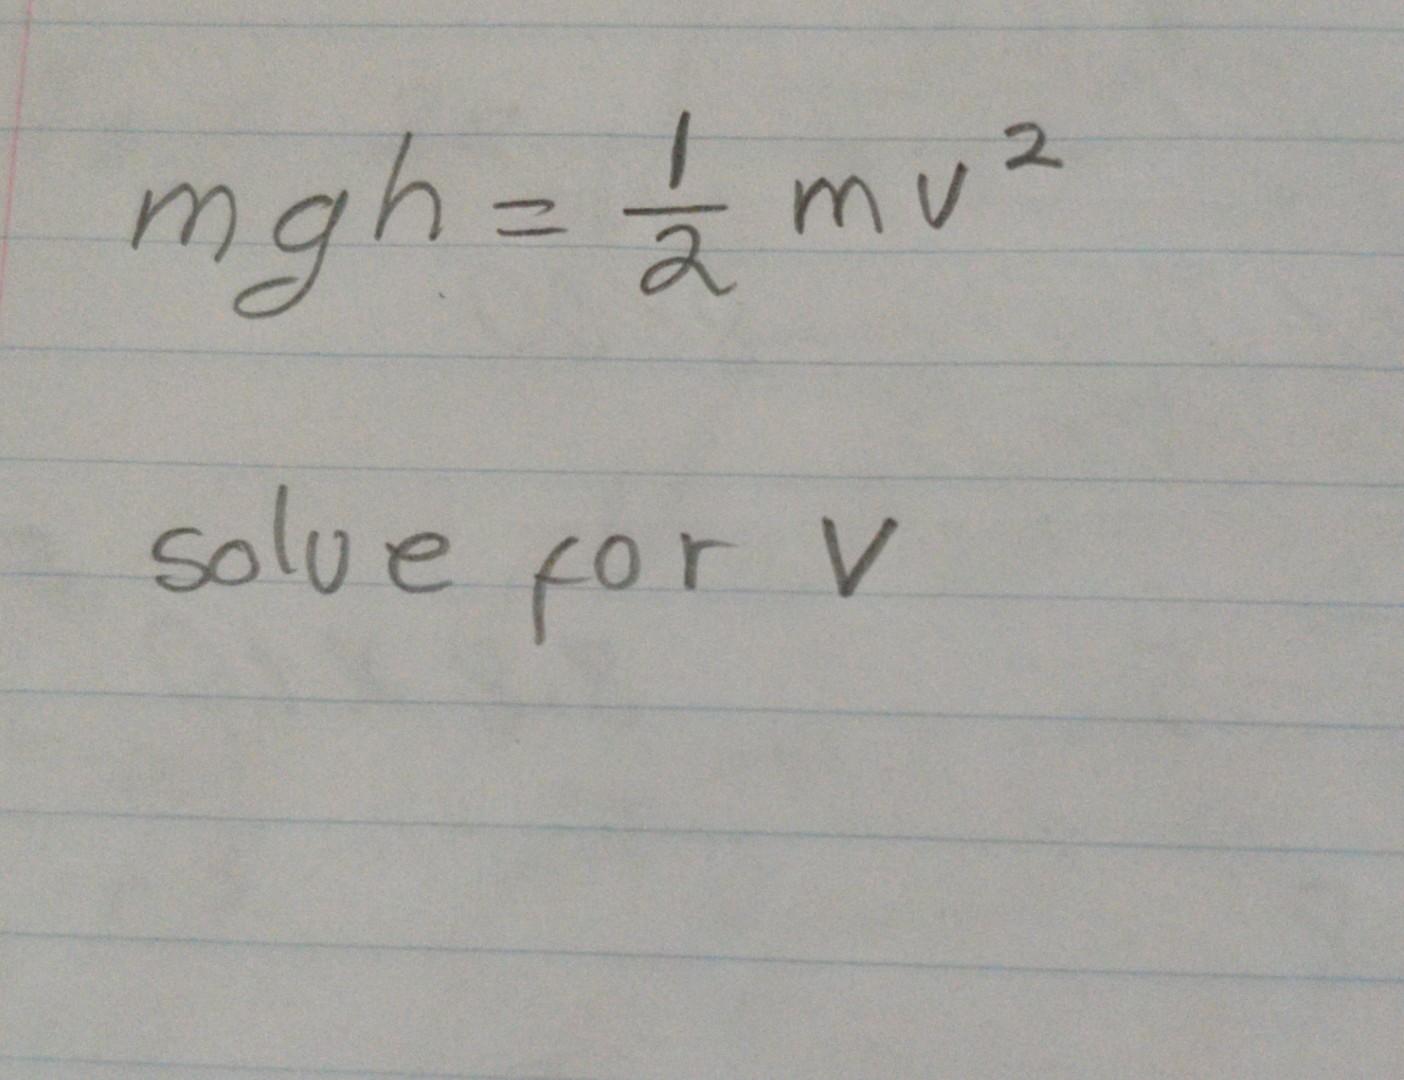 mgh = 1/2 mv²
solve for v